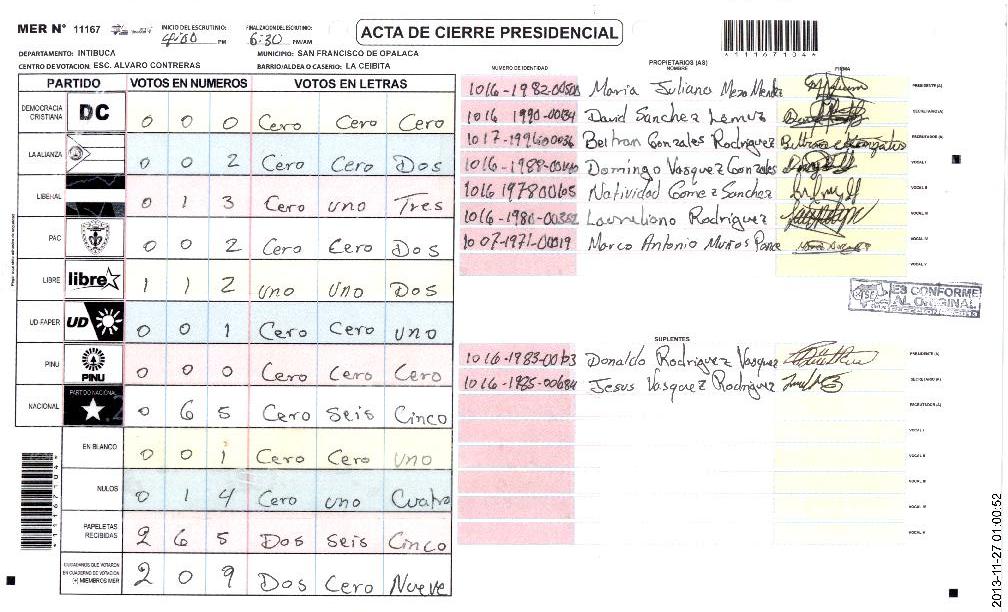 MER N° 11167 INICIO DEL ESCRUTINIO: 4:00 PM FINALIZACION DEL ESCRUTINIO: 6:30 PM/AM
ACTA DE CIERRE PRESIDENCIAL
DEPARTAMENTO: INTIBUCA MUNICIPIO: SAN FRANCISCO DE OPALACA
CENTRO DE VOTACION: ESC. ALVARO CONTRERAS BARRIO/ALDEA O CASERIO: LA CEIBITA
PARTIDO VOTOS EN NUMEROS VOTOS EN LETRAS
DEMOCRACIA CRISTIANA DC 0 0 0 Cero Cero Cero
LA ALIANZA 0 0 2 Cero Cero Dos
LIBERAL 0 1 3 Cero uno Tres
PAC 0 0 2 Cero Cero Dos
LIBRE libre 1 1 2 uno uno Dos
UD-FAPER UD 0 0 1 Cero Cero uno
PINU PINU 0 0 0 Cero Cero Cero
NACIONAL PARTIDO NACIONAL 0 6 5 Cero Seis Cinco
EN BLANCO 0 0 1 Cero Cero uno
NULOS 0 1 4 Cero uno Cuatro
PAPELETAS RECIBIDAS 2 6 5 Dos Seis Cinco
CIUDADANOS QUE VOTARON EN CUADERNO DE VOTACION (+) MIEMBROS MER 2 0 9 Dos Cero Nueve
*1116710 4*
PROPIETARIOS (AS)
NUMERO DE IDENTIDAD NOMBRE FIRMA
1016-1982- Maria Juliana Meza PRESIDENTE(A)
1016 1990-00134 David Sanchez Lemuz SECRETARIO(A)
1017-1996 Beltran Gonzales Rodriguez ESCRUTADOR(A)
1016-1988- Domingo Vasquez Gonzales VOCAL I
1016 1978 Natividad Gomez Sanchez VOCAL II
1016-1980- Laureliano Rodriguez VOCAL III
1007-1971-00019 Marco Antonio Ponce VOCAL IV
VOCAL V
ES CONFORME AL ORIGINAL
SUPLENTES
1016-1983- Donaldo Rodriguez Vasquez PRESIDENTE(A)
1016-1985-00684 Jesus Vasquez Rodriguez SECRETARIO(A)
ESCRUTADOR(A)
VOCAL I
VOCAL II
VOCAL III
VOCAL IV
VOCAL V
2013-11-27 01:00:52